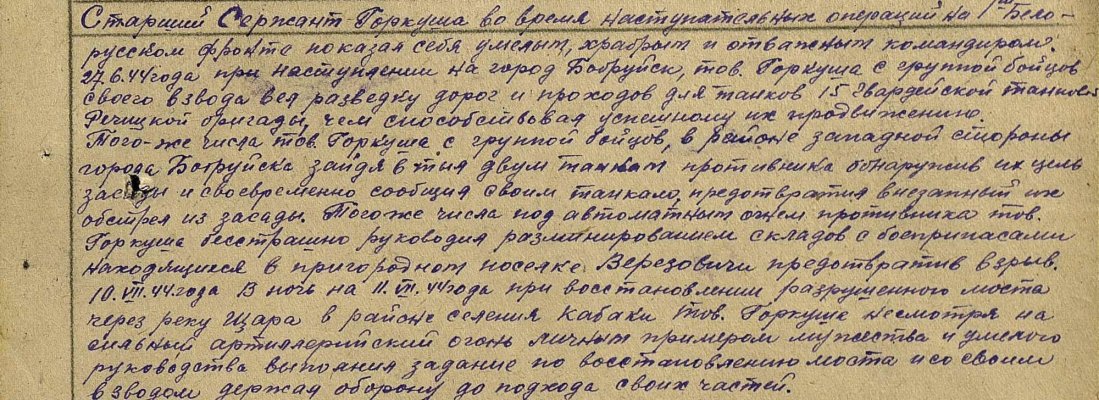 Старший Сержант Горкуша во время наступательных операций на 1ом Бело-
русском фронте показал себя умелым, храбрым и отважным командиром.
27.6.44 года при наступлении на город Бобруйск, тов. Горкуша с группой бойцов
своего взвода вел разведку дорог и проходов для танков 15 Гвардейской танковой
Речицкой бригады, чем способствовал успешному их продвижению.
Того-же числа тов. Горкуша с группой бойцов, в районе западной стороны
города Бобруйска зайдя в тыл двум танкам противника обнаружив их цель
засады и своевременно сообщил своим танкам, предотвратил внезапный их
обстрел из засады. Того же числа под автоматным огнем противника тов.
Горкуша бесстрашно руководил разминированием складов с боеприпасами
находящиеся в пригородном поселке Березовичи предотвратив взрыв.
10.VII.44 года В ночь на 11.VII.44 года при восстановлении разрушенного моста
через реку Щара в районе селения Кабаки тов. Горкуша несмотря на
сильный артиллерийский огонь личным примером мужества и умелого
руководства выполнил задание по восстановлению моста и со своим
взводом держал оборону до подхода своих частей.